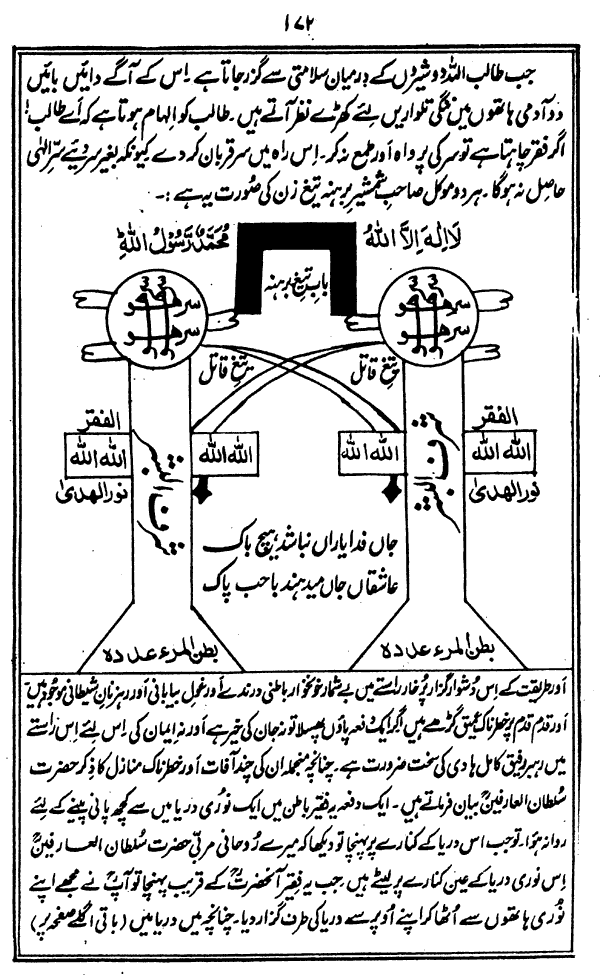 ۱۷۲
جب طالب اللہ دو شیروں کے درمیان سلامتی سے گزر جاتا ہے۔ اس کے آگے دائیں بائیں
دو آدمی ہاتھوں میں ننگی تلواریں لئے کھڑے نظر آتے ہیں۔ طالب کو الہام ہوتا ہے کہ اَے طالب!
اگر فقر چاہتا ہے تو سر کی پرواہ اَور طمع نہ کر۔ اِس راہ میں سر قربان کر دے کیونکہ بغیر سر دیئے سرِّ الٰہی
حاصل نہ ہوگا۔ ہر دو موکل صاحبِ شمشیر برہنہ تیغ زن کی صُورت یہ ہے :۔
لَا اِلٰہَ اِلَّا اللہُ
مُحَمَّدٌ رَّسُوْلُ اللہِ
بابِ تیغِ برہنہ
سر ھو
سر ھو
سر ھو
سر ھو
تیغِ قاتل
تیغِ قاتل
الفقر
اللہ اللہ
نور الھدیٰ
اللہ اللہ
شرف البشر
الفقر
اللہ اللہ
نور الھدیٰ
اللہ اللہ
شرف البشر
جاں فدا یاراں نباشد ہیچ باک
عاشقاں جاں میدہند باحب پاک
بطن المرء عدده
بطن المرء عدده
اَور طریقت کے اِس دُشوار گزار پُرخار راستے میں بے شمار خونخوار باطنی درندے اَور غولِ بیابانی اَور رہزنانِ شیطانی موجُود ہیں
اَور قدم قدم پر خطرناک عمیق گڑھے ہیں اگر ایک دفعہ پاؤں پھسلا تو نہ جان کی خیر ہے اَور نہ ایمان کی۔ اِس لئے اِس راستے
میں راہبر رفیق کامل ہادی کی سخت ضرورت ہے۔ چنانچہ منجملہ ان کی چند آفات اَور خطرناک منازل کا ذِکر حضرت
سُلطان العارفینؒ بیان فرماتے ہیں۔ ایک دفعہ یہ فقیر باطن میں ایک نُوری دریا میں سے کچھ پانی پینے کے لئے
روانہ ہؤا۔ تو جب اس دریا کے کنارے پر پہنچا تو دیکھا کہ میرے رُوحانی مربّی حضرت سُلطان العارفینؒ
اِس نوری دریا کے عین کنارے پر لیٹے ہیں۔ جب یہ فقیر آنحضرتؒ کے قریب پہنچا تو آپؒ نے مجھے اپنے
نُوری ہاتھوں سے اُٹھا کر اپنے اُوپر سے دریا کی طرف گزار دیا۔ چنانچہ میں دریا میں (باقی اگلے صفحہ پر)